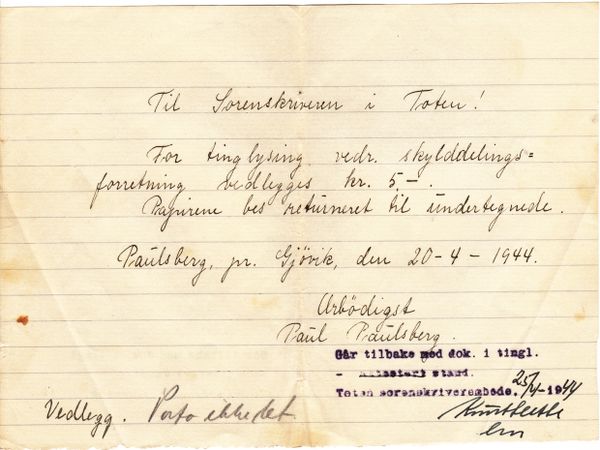 Til Sorenskriveren i Toten!
For tinglysing vedr. skylddelings=
forretning vedlegges kr. 5-.
Papirene bes returneret til undertegnede.
Paulsberg, pr. Gjövik, den 20-4-1944.
Ærbödigst
Paul Paulsberg.
Går tilbake med dok. i tingl.
- stand.
Toten sorenskriverembede, 25/4-1944
Vedlegg. Porto